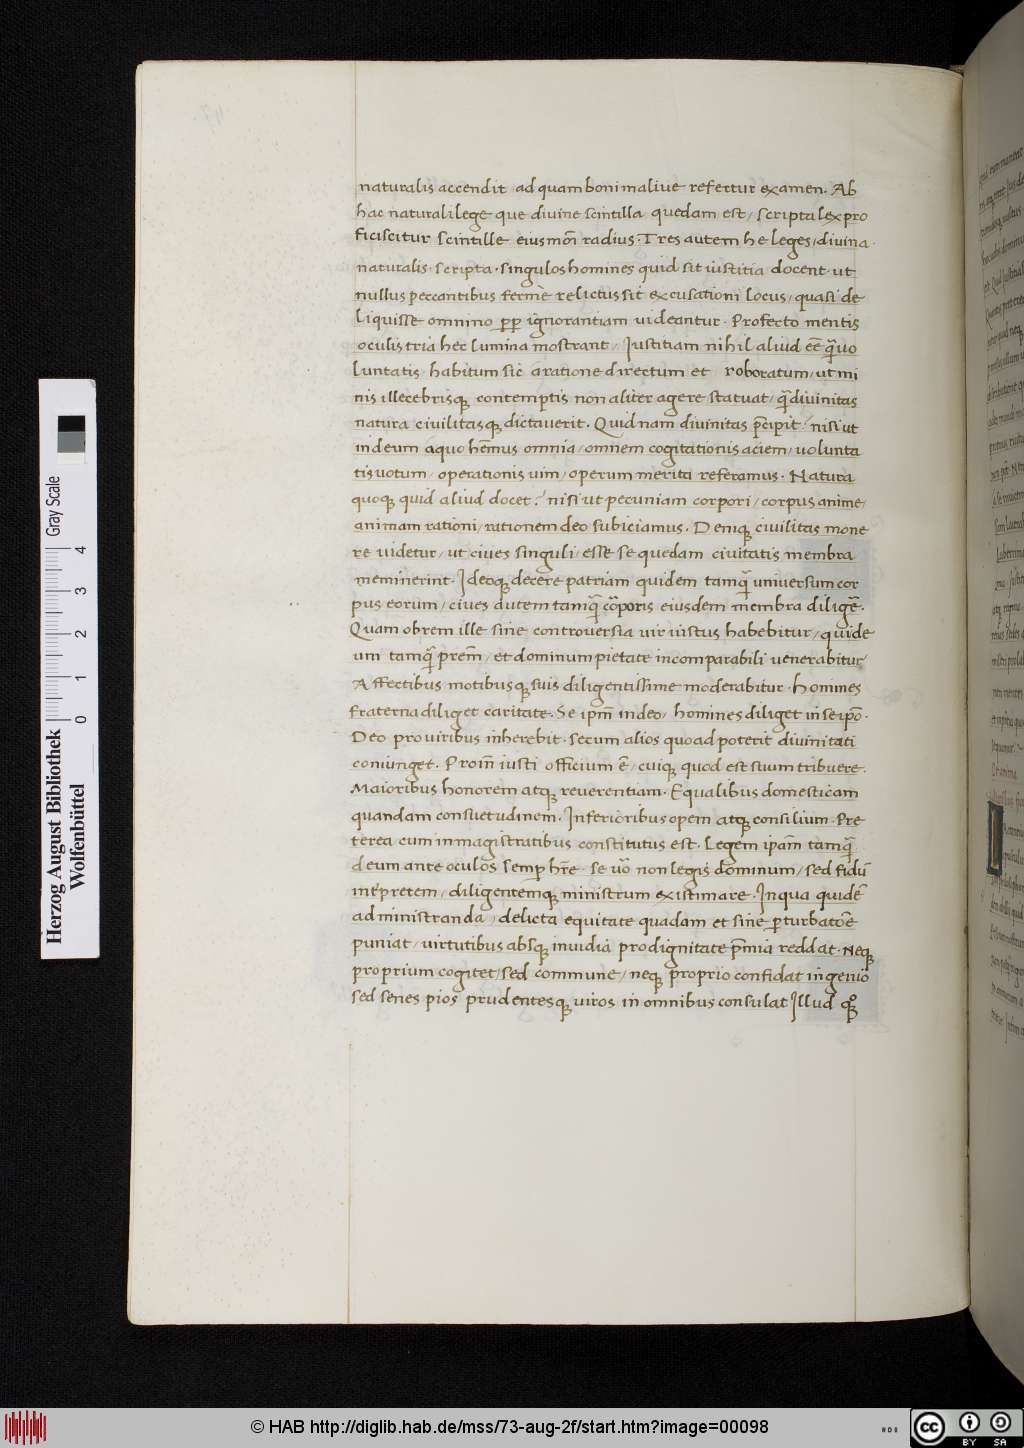 naturalis accendit ad quam boni malive refertur examen. Ab
hac naturali lege que divine scintilla quedam est, scripta lex pro
ficiscitur scintille eiusmōi radius. Tres autem he leges, divina.
naturalis. scripta. singulos homines quid sit iustitia docent. ut
nullus peccantibus ferme relictus sit excusationi locus, quasi de
liquisse omnino ꝑꝑ ignorantiam videantur. Profecto mentis
oculis tria hec lumina mostrant, Justitiam nihil aliud eē̄ q̄ vo
luntatis habitum sic a ratione directum et roboratum, ut mi
nis illecebrisqꝫ contemptis non aliter agere statuat, q̄ divinitas
natura civilitasqꝫ dictaverit. Quid nam divinitas p̄cipit? nisi ut
in deum a quo hēmus omnia, omnem cogitationis aciem, volunta
tis votum, operationis vim, operum merita referamus. Natura
quoqꝫ quid aliud docet? nisi ut pecuniam corpori, corpus anime,
animam rationi, rationem deo subiciamus. Deniqꝫ civilitas mone
re videtur, ut cives singuli esse se quedam civitatis membra
meminerint. Ideoqꝫ decere patriam quidem tamq̄ universum cor
pus eorum, cives autem tamq̄ cōporis eiusdem membra diligē.
Quam obrem ille sine controversia vir iustus habebitur, qui de
um tamq̄ prem̄, et dominum pietate incomparabili venerabitur
Affectibus motibusqꝫ suis diligentissime moderabitur. homines
fraterna diliget caritate. Se ipm̄ in deo, homines diliget in se ipō.
Deo pro viribus inherebit. secum alios quoad poterit divinitati
coniunget. Proin̄ iusti officium ē, cuiqꝫ quod est suum tribuere.
Maioribus honorem atqꝫ reverentiam. Equalibus domesticam
quandam consuetudinem. Inferioribus opem atqꝫ consilium. Pre
terea cum in magistratibus constitutus est. Legem ipam̄ tamq̄
deum ante oculos semp hr̄e. se vō non legis dominum, sed fidū
interpretem, diligentemqꝫ ministrum existimare. In qua quidē
administranda, delicta equitate quadam et sine ꝑturbatōe
puniat, virtutibus absqꝫ invidia pro dignitate p̄mia reddat. Neqꝫ
proprium cogitet, sed commune, neqꝫ proprio confidat ingenio
sed senes pios prudentesqꝫ viros in omnibus consulat Illud qꝫ
Herzog August Bibliothek
Wolfenbüttel
0 1 2 3 4
Gray Scale
© HAB http://diglib.hab.de/mss/73-aug-2f/start.htm?image=00098
cc BY SA